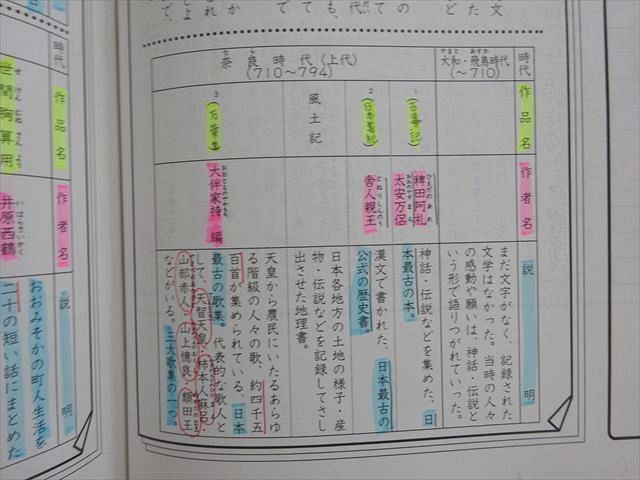 時代
作品名
作者名
説明
大和・飛鳥時代
やまと あすか
(〜710)
まだ文字がなく、記録された
文学はなかった。当時の人々
の感動や願いは、神話・伝説と
いう形で語りつがれていった。
奈良時代(上代)
なら
(710〜794)
1
(古事記)
稗田阿礼
ひえだのあれ
太安万侶
おおのやすまろ
神話・伝説などを集めた、日
本最古の本。
2
(日本書紀)
舎人親王
とねりしんのう
漢文で書かれた、日本最古の
公式の歴史書。
風土記
日本各地方の土地の様子・産
物・伝説などを記録してさし
出させた地理書。
3
(万葉集)
大伴家持 編
おおとものやかもち
天皇から農民にいたるあらゆ
る階級の人々の歌、約四千五
百首が集められている、日本
最古の歌集。代表的な歌人と
して、天智天皇・柿本人麻呂・
山部赤人・山上憶良・額田王
などがいる。三大歌集の一つ。
時代
作品名
作者名
説明
世間胸算用
せけんむねさんよう
井原西鶴
いはらさいかく
おおみそかの町人生活を
二十の短い話にまとめた